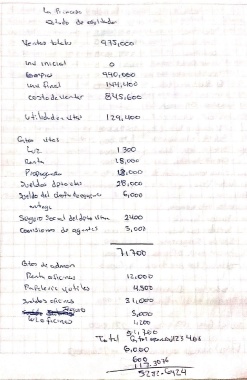 La Primero
Estado de resultados
Ventas totales 975,000
inv inicial 0
Compras 990,000
inv final 144,400
costo de ventas 845,600
utilidad en vtas 129,400
Gtos vtas
Luz 1300
Renta 18,000
Propaganda 18,000
Sueldos dpto vtas 28,000
Sueldo del chofer de equipo 6,000
entrega
Seguro Social del dpto vtas 2400
Comisiones de agentes 3,000
71700
Gtos de admon
Renta oficinas 12,000
Papeleria y utiles 4,500
Sueldos oficinas 31,000
5,000
Luz oficinas 1,200
Total Gtos
6,000
600